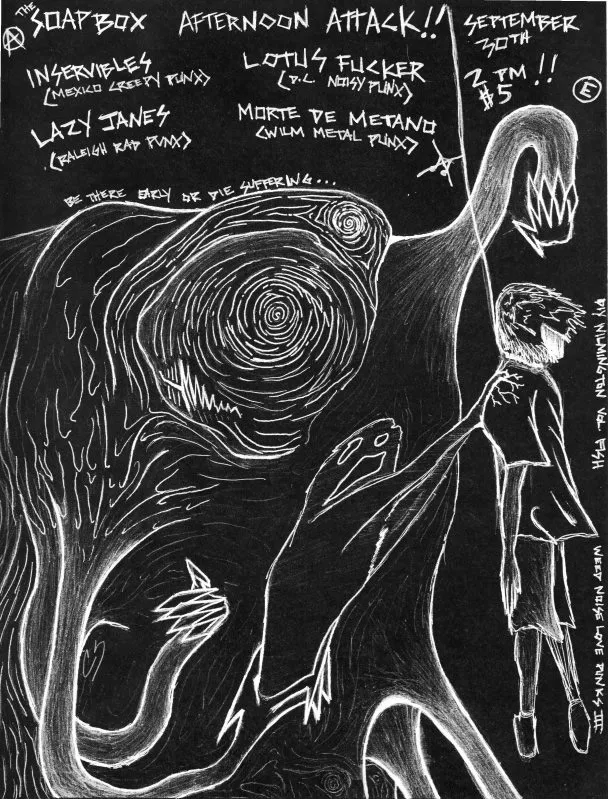 Ⓐ THE SOAPBOX AFTERNOON ATTACK!!
SEPTEMBER
30TH
2 PM !!
$5
Ⓔ
INSERVIBLES
(MEXICO CREEPY PUNX)
LOTUS FUCKER
(D.C. NOISY PUNX)
LAZY JANES
(RALEIGH RAD PUNX)
MORTE DE METANO
(WILM METAL PUNX)
BE THERE EARLY OR DIE SUFFERING...
DIY WILMINGTON VOL. FISH
WEED NOISE LOVE PUNKS III